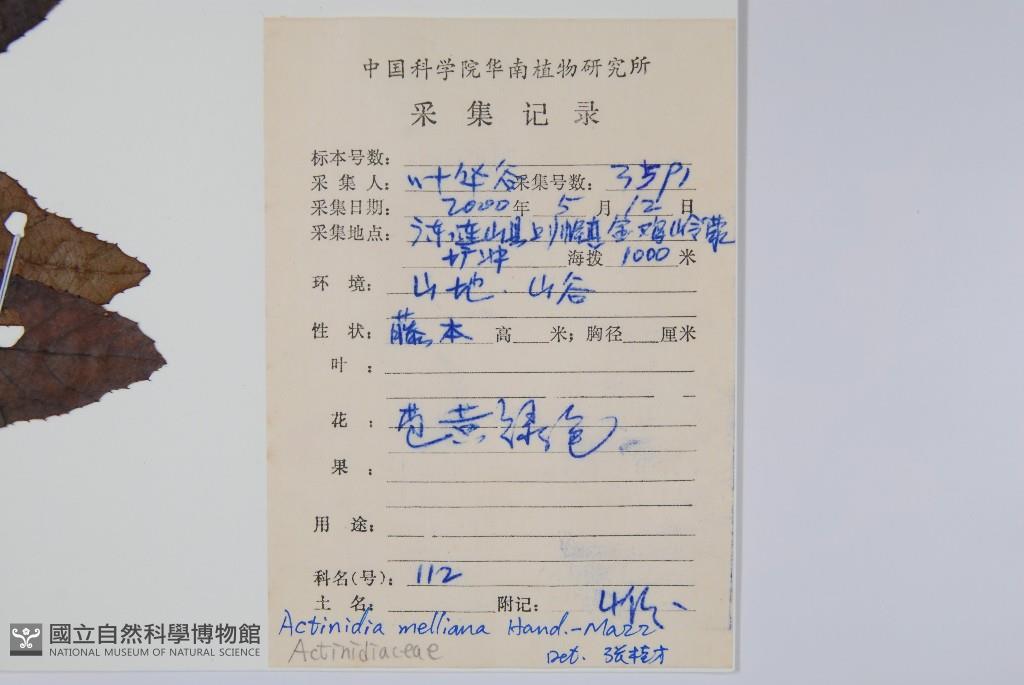 中国科学院华南植物研究所
采集记录
标本号数：
采集人：叶华谷 采集号数：3591
采集日期：2000年5月12日
采集地点：广东连山县上帅镇金鸡岭
冲 海拨1000米
环境：山地．山谷
性状：藤本 高 米；胸径 厘米
叶：
花：苞黄绿色
果：
用途：
科名(号)：112
土名： 附记：4份
Actinidia melliana Hand.-Mazz
Actinidiaceae Det. 张桂才
國立自然科學博物館
NATIONAL MUSEUM OF NATURAL SCIENCE